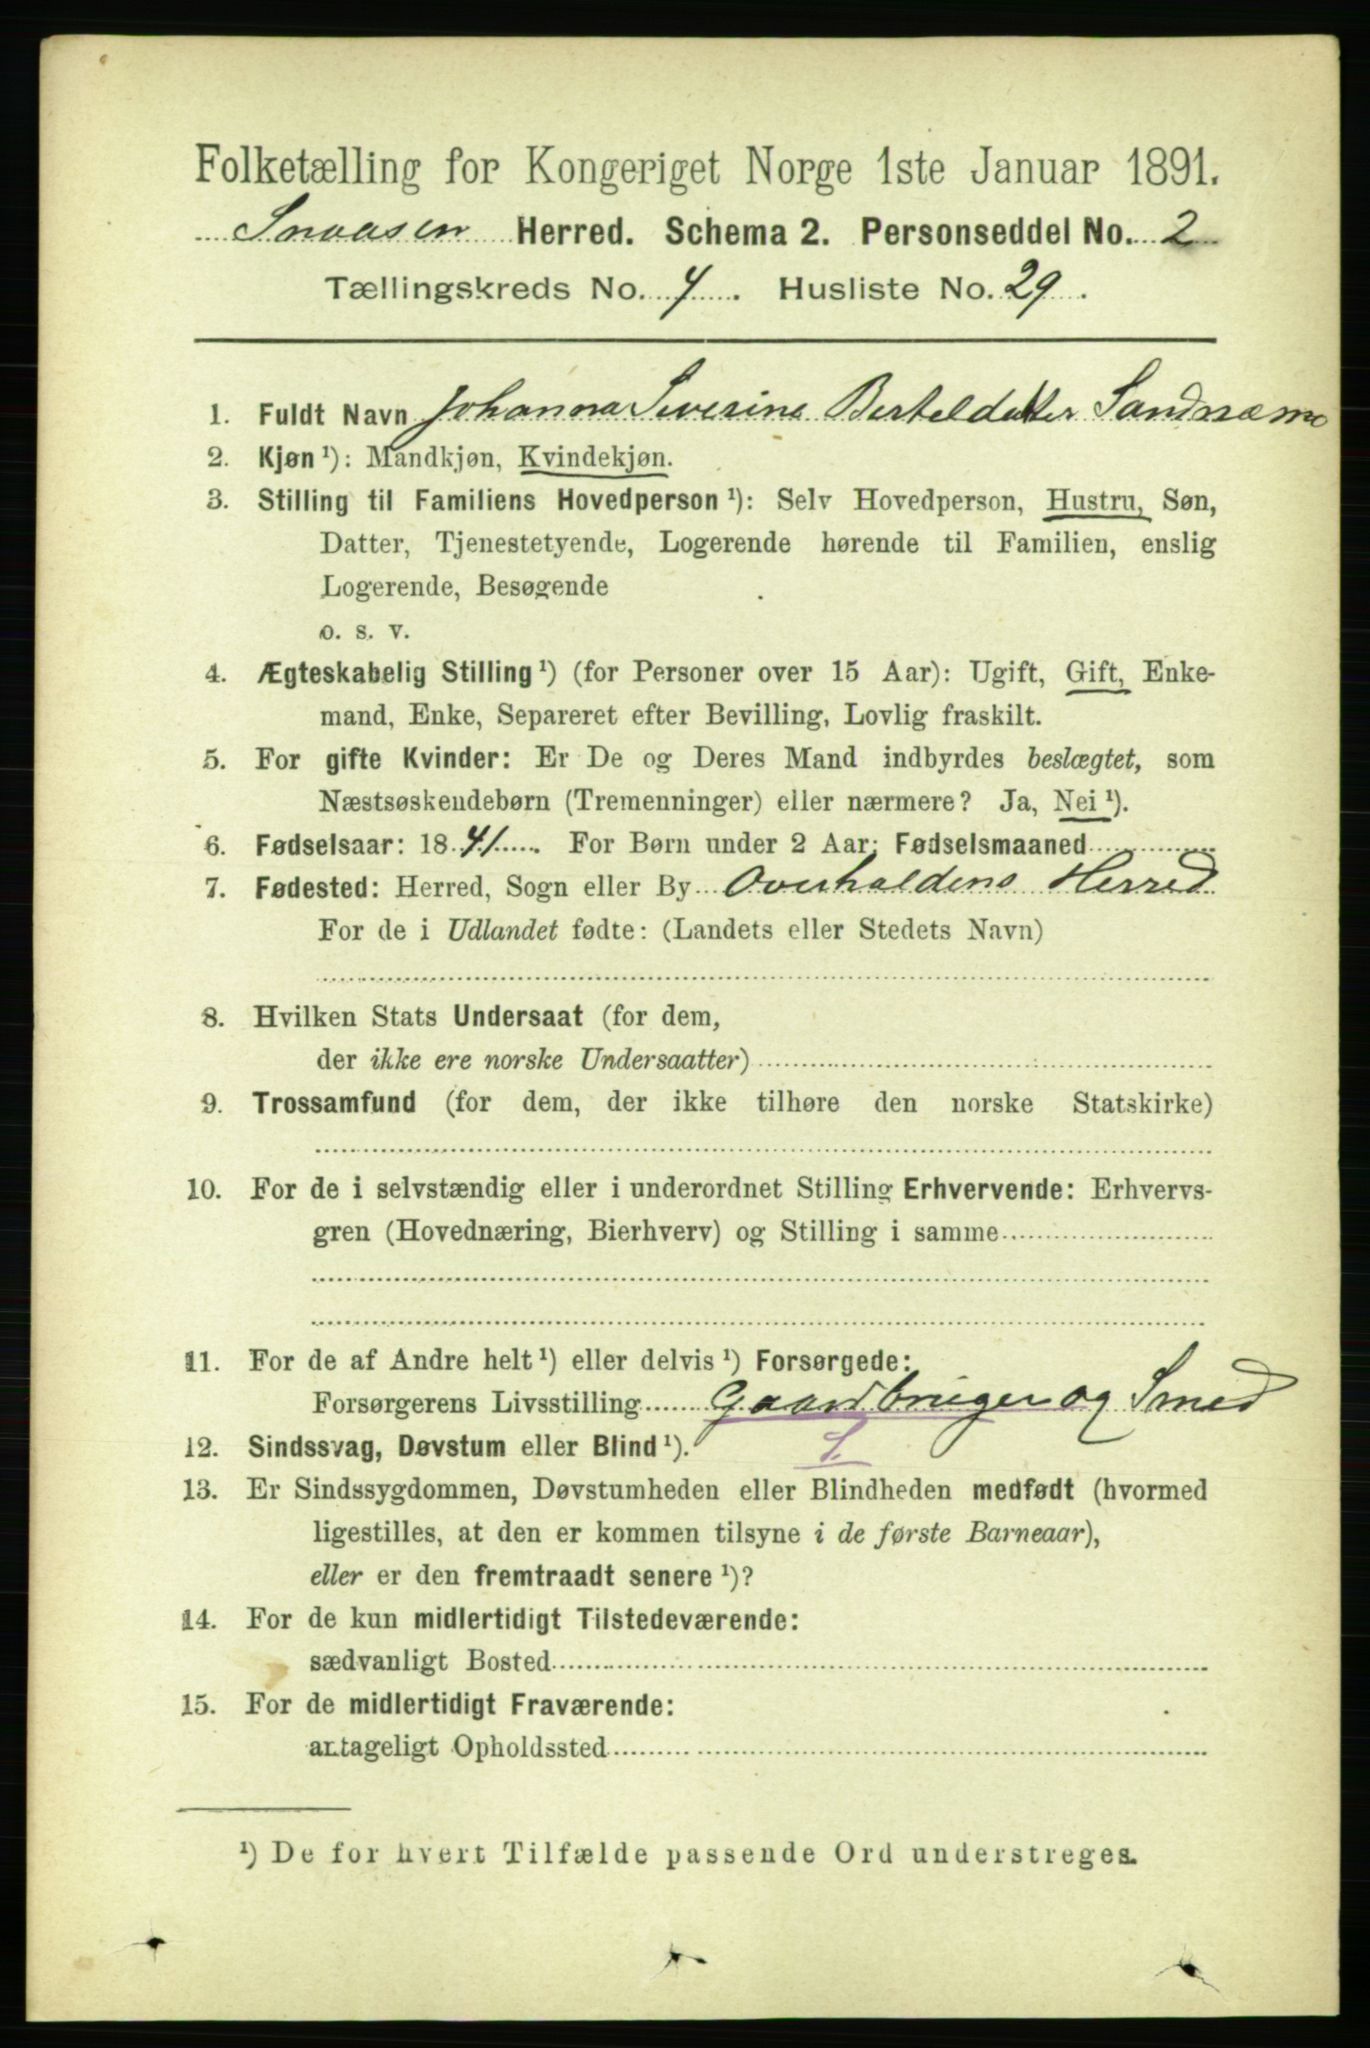 Folketælling for Kongeriget Norge 1ste Januar 1891.
Snaasen Herred. Schema 2. Personseddel No. 2
Tællingskreds No. 4. Husliste No. 29.
1. Fuldt Navn Johanna Severine Berteldatter Sandnæmo
2. Kjøn ¹): Mandkjøn, Kvindekjøn.
3. Stilling til Familiens Hovedperson ¹): Selv Hovedperson, Hustru, Søn,
Datter, Tjenestetyende, Logerende hørende til Familien, enslig
Logerende, Besøgende
o. s. v.
4. Ægteskabelig Stilling ¹) (for Personer over 15 Aar): Ugift, Gift, Enke-
mand, Enke, Separeret efter Bevilling, Lovlig fraskilt.
5. For gifte Kvinder: Er De og Deres Mand indbyrdes beslægtet, som
Næstsøskendebørn (Tremenninger) eller nærmere? Ja, Nei ¹).
6. Fødselsaar: 1841. For Børn under 2 Aar: Fødselsmaaned
7. Fødested: Herred, Sogn eller By Overhaldens Herred
For de i Udlandet fødte: (Landets eller Stedets Navn)
8. Hvilken Stats Undersaat (for dem,
der ikke ere norske Undersaatter)
9. Trossamfund (for dem, der ikke tilhøre den norske Statskirke)
10. For de i selvstændig eller i underordnet Stilling Erhvervende: Erhvervs-
gren (Hovednæring, Bierhverv) og Stilling i samme
11. For de af Andre helt ¹) eller delvis ¹) Forsørgede:
Forsørgerens Livsstilling Gaardbruger og Smed
12. Sindssvag, Døvstum eller Blind ¹). S.
13. Er Sindssygdommen, Døvstumheden eller Blindheden medfødt (hvormed
ligestilles, at den er kommen tilsyne i de første Barneaar),
eller er den fremtraadt senere ¹)?
14. For de kun midlertidigt Tilstedeværende:
sædvanligt Bosted
15. For de midlertidigt Fraværende:
antageligt Opholdssted
¹) De for hvert Tilfælde passende Ord understreges.